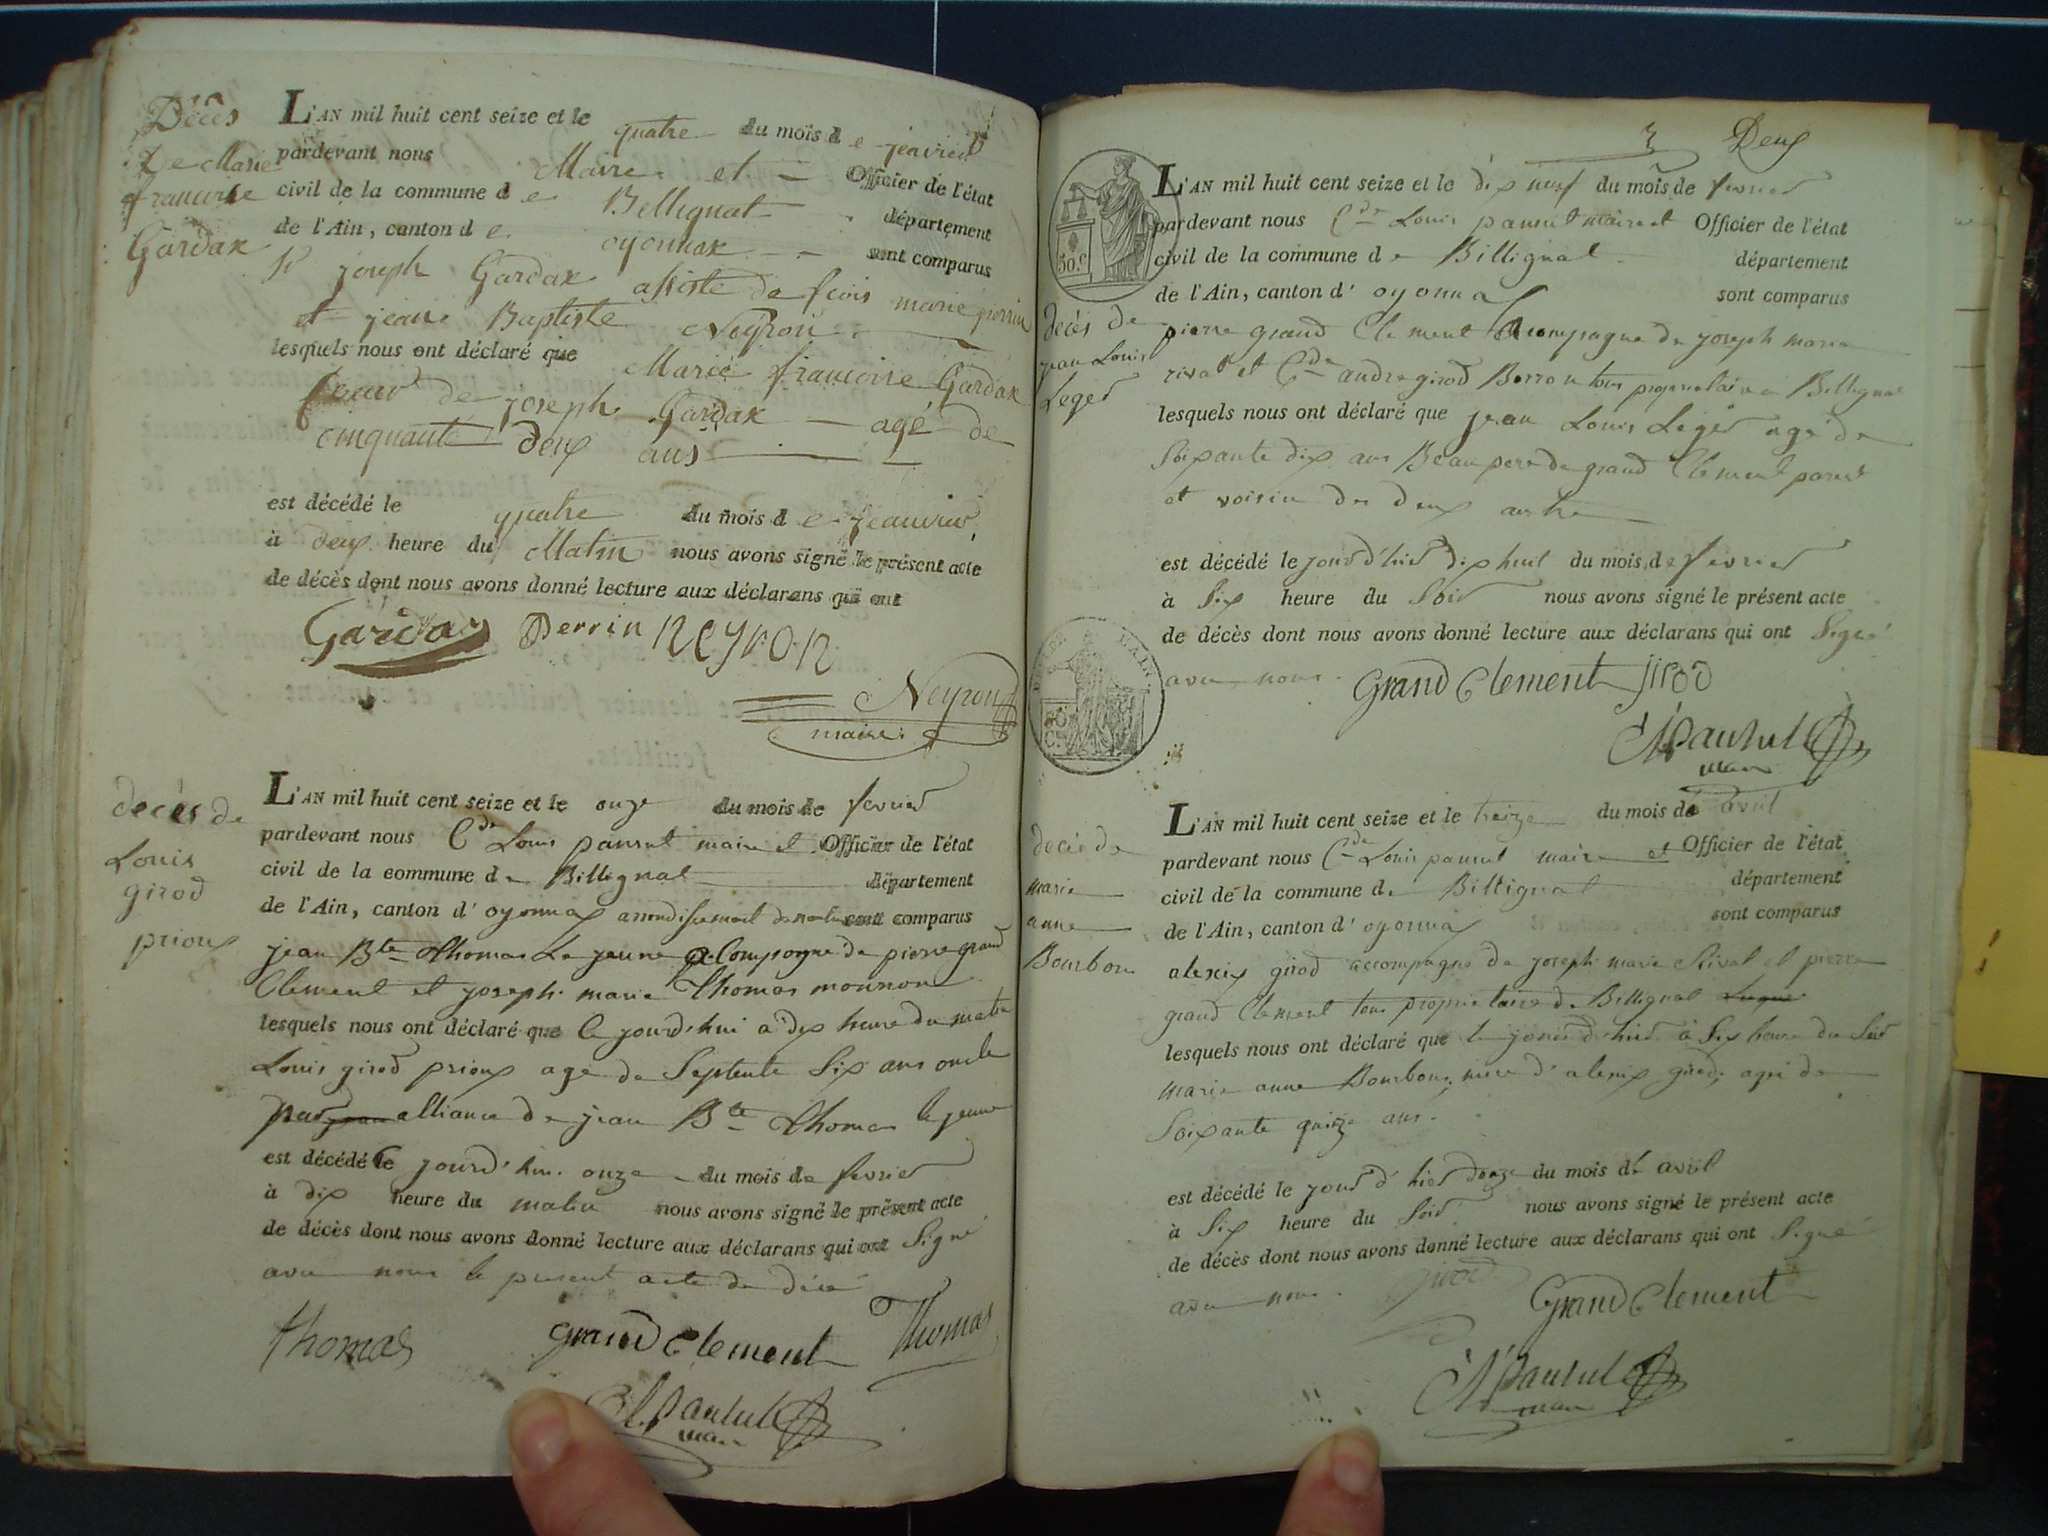 Décès
de Marie
francoise
Gardax
L'AN mil huit cent seize et le quatre du mois de jeanvier
pardevant nous Maire et Officier de l'état
civil de la commune de Bellignat département
de l'Ain, canton de oyonnax sont comparus
Sr joseph Gardax assisté de fcois marie perrin
et jean Baptiste Neyron
lesquels nous ont déclaré que Marie francoise Gardax
soeur de joseph Gardax agé de
cinquante deux ans
est décédé le quatre du mois de jeanvier
à deux heure du Matin nous avons signé le présent acte
de décès dont nous avons donné lecture aux déclarans qui ont
Gardax Perrin neyron
Neyron
maire
decès de
Louis
girod
prioux
L'AN mil huit cent seize et le onze du mois de fevrier
pardevant nous Cde Louis pansut maire et Officier de l'état
civil de la commune de Billignat département
de l'Ain, canton d'oyonnax arrondissement de sont comparus
jean Bte thomas Le jeune acCompagne de pierre grand
Clement et joseph marie thomas
lesquels nous ont déclaré que Ce jourd'hui a dix heure du matin
Louis girod prioux age de Septente Six ans oncle
par alliance de jean Bte thomas le jeune
est décédé le jourd'hui onze du mois de fevrier
à dix heure du matin nous avons signé le présent acte
de décès dont nous avons donné lecture aux déclarans qui ont Signé
avec nous le present acte de décé
thomas grand Clement Thomas
CL Pansut
maire
Deux
50 C
L'AN mil huit cent seize et le dix neuf du mois de fevrier
pardevant nous Cde Louis pansut maire et Officier de l'état
civil de la commune de Billignat département
de l'Ain, canton d'oyonnax sont comparus
decès de
jean Louis
Leger
pierre grand Clement accompagne de joseph marie
rivat et Cde andre girod Borron tous proprietaire a Billignat
lesquels nous ont déclaré que jean Louis Leger age de
Soixante dix ans Beaupere de grand Clement parent
et voisin des deux autre
est décédé le jourd'hier dix huit du mois de fevrier
à Six heure du Soir nous avons signé le présent acte
de décès dont nous avons donné lecture aux déclarans qui ont Signé
avec nous. Grand Clement jirod
CL Pansut
maire
decès de
marie
anne
Bourbon
L'AN mil huit cent seize et le treize du mois de avril
pardevant nous Cde Louis pansut maire et Officier de l'état
civil de la commune de Billignat département
de l'Ain, canton d'oyonnax sont comparus
alexis girod accompagne de joseph marie Rivat et pierre
grand Clement tous proprietaire de Billignat
lesquels nous ont déclaré que le jourd'hier à Six heure du Soir
marie anne Bourbon, mere d'alexis girod, agée de
Soixante quinze ans.
est décédé le jour d'hier douze du mois de avril
à Six heure du Soir nous avons signé le présent acte
de décès dont nous avons donné lecture aux déclarans qui ont Signé
avec nous. jirod Grand Clement
CL Pansut
maire